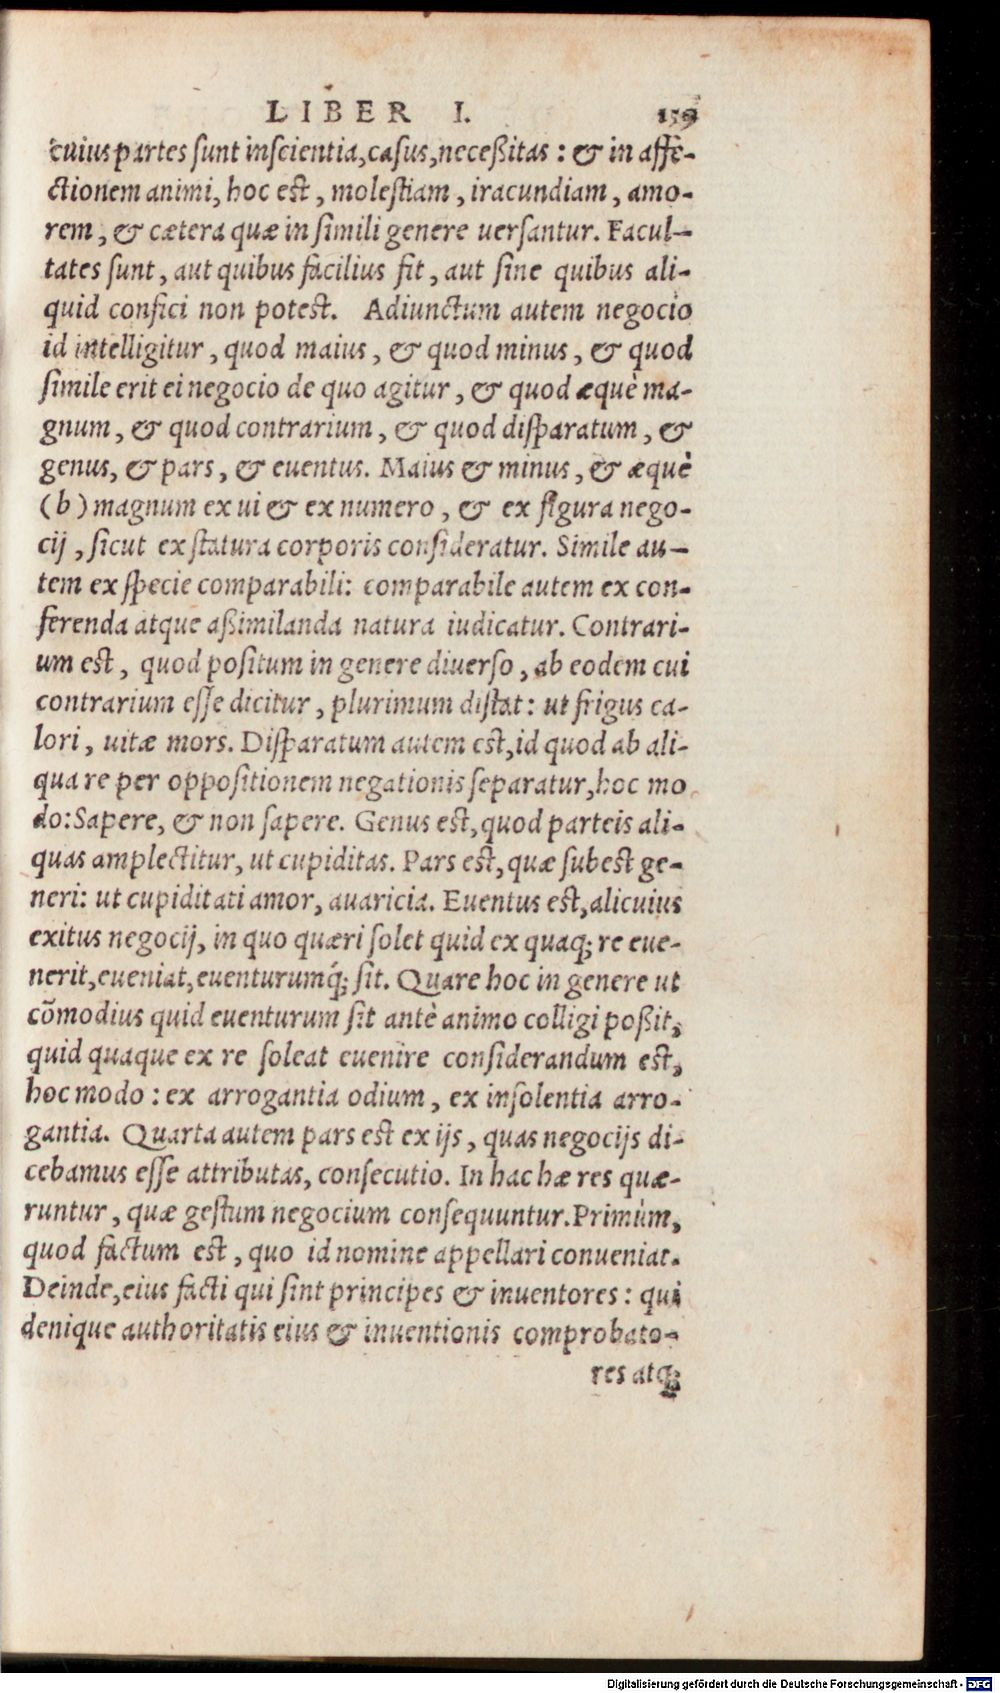 LIBER I. 159
cuius partes sunt inscientia, casus, neceßitas: & in affe-
ctionem animi, hoc est, molestiam, iracundiam, amo-
rem, & cætera quæ in simili genere uersantur. Facul-
tates sunt, aut quibus facilius fit, aut sine quibus ali-
quid confici non potest. Adiunctum autem negocio
id intelligitur, quod maius, & quod minus, & quod
simile erit ei negocio de quo agitur, & quod æquè ma-
gnum, & quod contrarium, & quod disparatum, &
genus, & pars, & euentus. Maius & minus, & æquè
(b) magnum ex ui & ex numero, & ex figura nego-
cij, sicut ex statura corporis consideratur. Simile au-
tem ex specie comparabili: comparabile autem ex con-
ferenda atque aßimilanda natura iudicatur. Contrari-
um est, quod positum in genere diuerso, ab eodem cui
contrarium esse dicitur, plurimum distat: ut frigus ca-
lori, uitæ mors. Disparatum autem est, id quod ab ali-
qua re per oppositionem negationis separatur, hoc mo
do: Sapere, & non sapere. Genus est, quod parteis ali-
quas amplectitur, ut cupiditas. Pars est, quæ subest ge-
neri: ut cupiditati amor, auaricia. Euentus est, alicuius
exitus negocij, in quo quæri solet quid ex quaq; re eue-
nerit, eueniat, euenturumq́; sit. Quare hoc in genere ut
cõmodius quid euenturum sit antè animo colligi poßit,
quid quaque ex re soleat euenire considerandum est,
hoc modo: ex arrogantia odium, ex insolentia arro-
gantia. Quarta autem pars est ex ijs, quas negocijs di-
cebamus esse attributas, consecutio. In hac hæ res quæ-
runtur, quæ gestum negocium consequuntur. Primùm,
quod factum est, quo id nomine appellari conueniat.
Deinde, eius facti qui sint principes & inuentores: qui
denique authoritatis eius & inuentionis comprobato-
res atq;
Digitalisierung gefördert durch die Deutsche Forschungsgemeinschaft - DFG